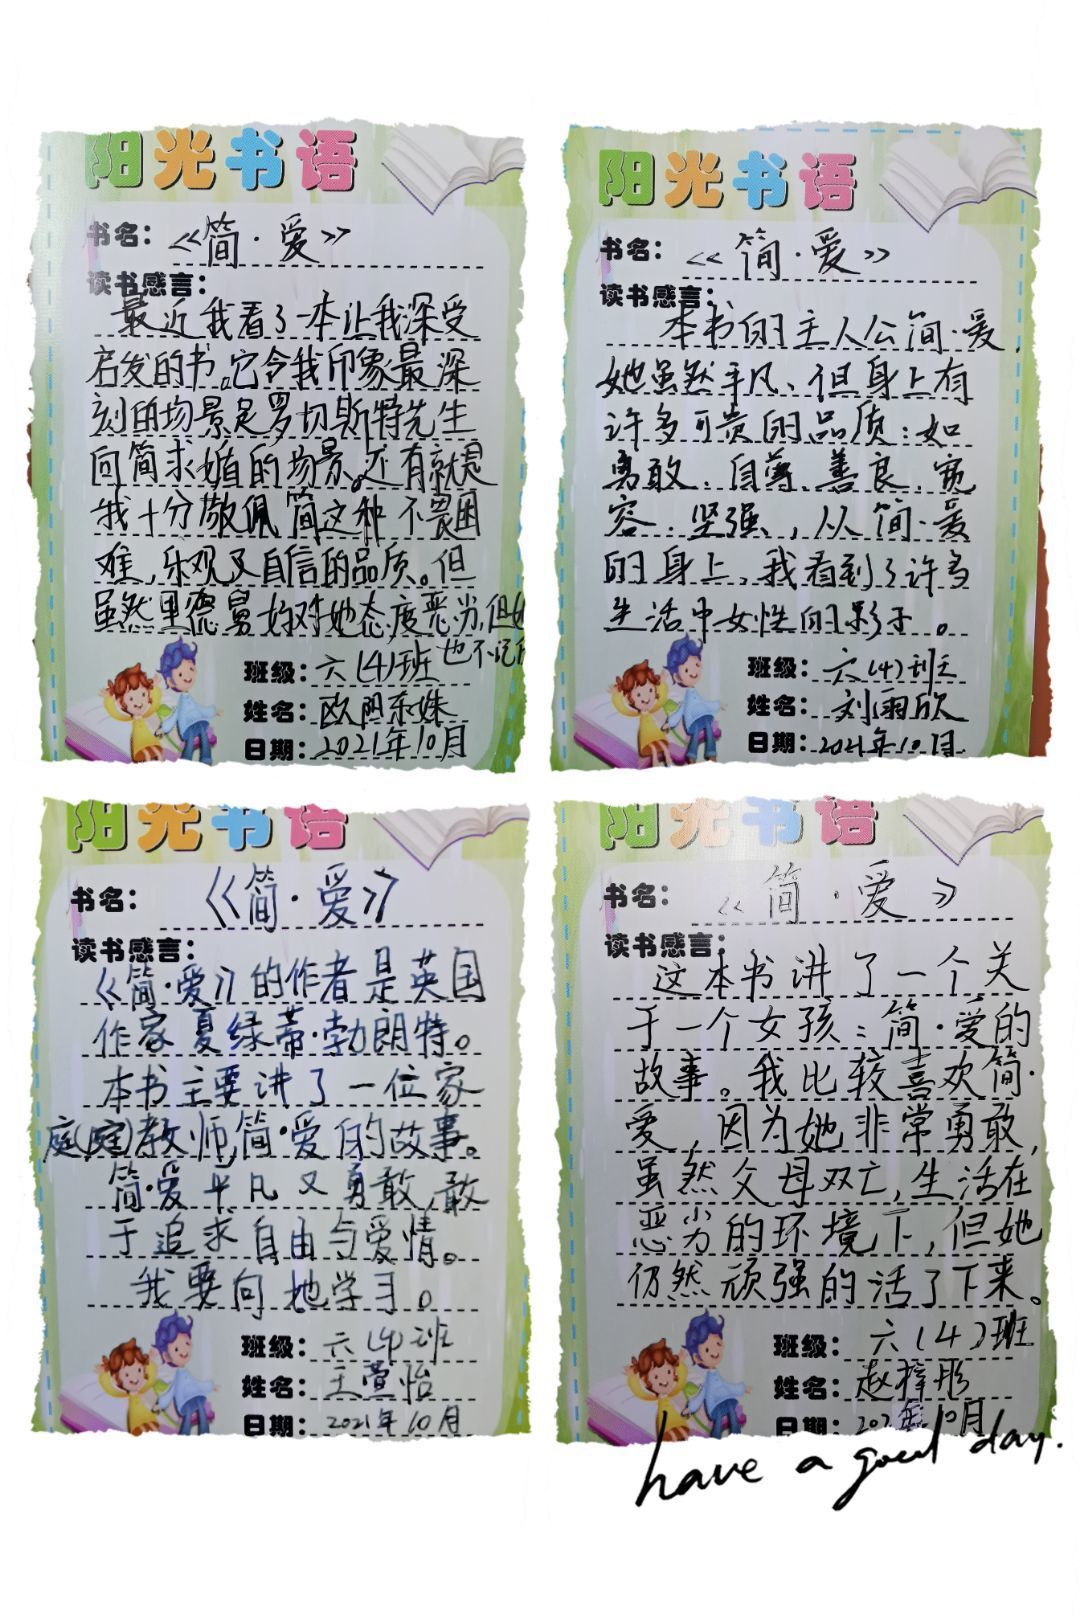 阳光书语
书名：《简·爱》
读书感言：
最近我看了一本让我深受
启发的书。它令我印象最深
刻的场景是罗切斯特先生
向简求婚的场景。还有就是
我十分敬佩简这种不畏困
难，乐观及自信的品质。但
虽然里德舅妈对她态度恶劣，但她
也不记
班级：六(4)班
姓名：欧阳东姝
日期：2021年10月
阳光书语
书名：《简·爱》
读书感言：
本书的主人公简·爱，
她虽然平凡、但身上有
许多可贵的品质：如
勇敢、自尊、善良、宽
容、坚强，从简·爱
的身上，我看到了许多
生活中女性的影子。
班级：六(4)班
姓名：刘雨欣
日期：2021年10月
阳光书语
书名：《简·爱》
读书感言：
《简·爱》的作者是英国
作家夏绿蒂·勃朗特。
本书主要讲了一位家
庭(庭)教师,简·爱的故事。
简·爱平凡又勇敢,敢
于追求自由与爱情。
我要向她学习。
班级：六(4)班
姓名：王萱怡
日期：2021年10月
阳光书语
书名：《简·爱》
读书感言：
这本书讲了一个关
于一个女孩：简·爱的
故事。我比较喜欢简·
爱，因为她非常勇敢，
虽然父母双亡,生活在
恶劣的环境下,但她
仍然顽强的活了下来。
班级：六(4)班
姓名：赵梓彤
日期：2021年10月
have a good day.